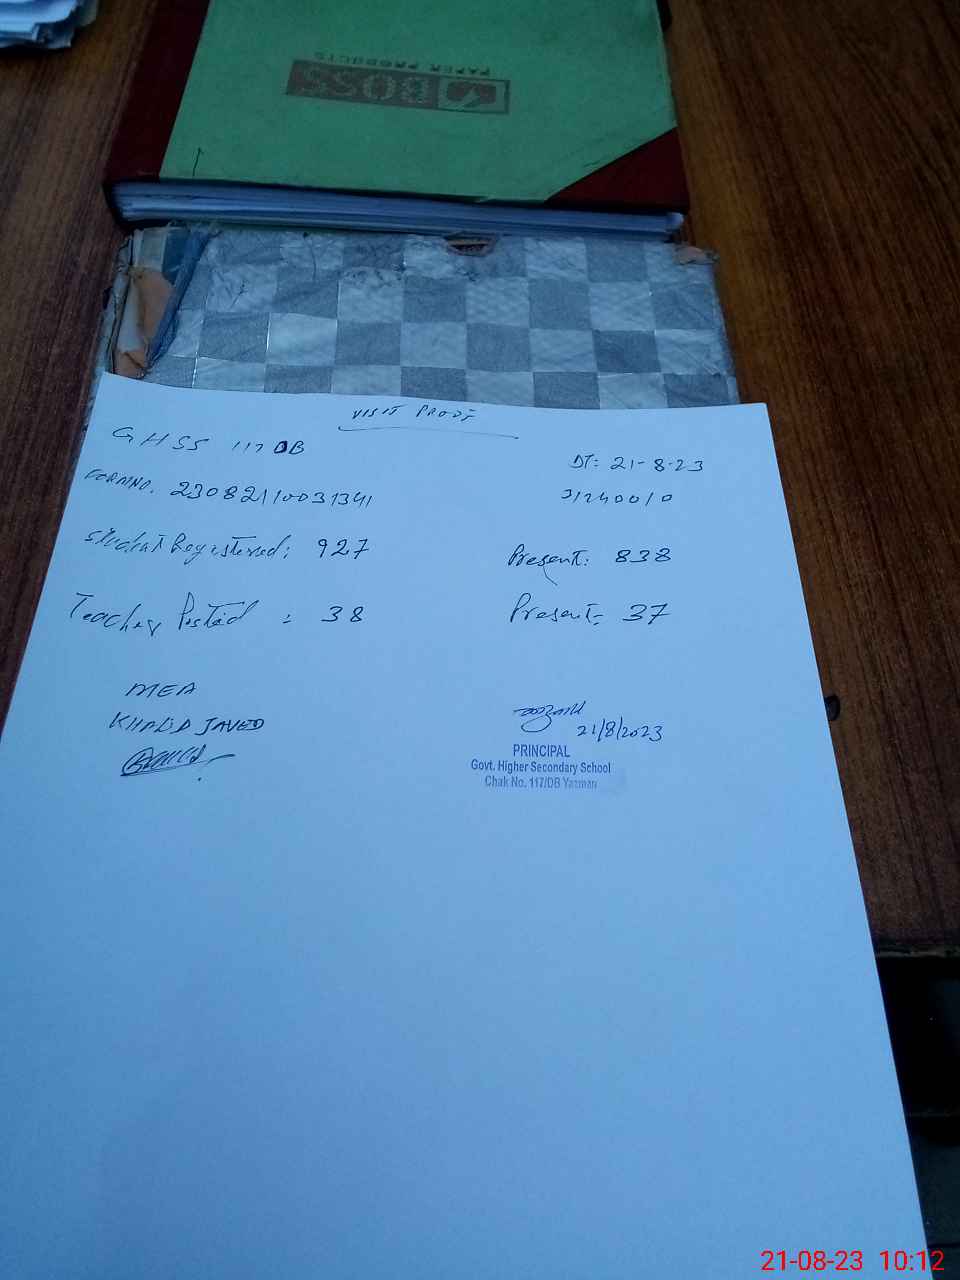 BOSS
PAPER PRODUCTS
VISIT PROOF
GHSS 117 DB
DT: 21-8-23
FORM NO. 23082110031341
31240010
Student Registered: 927
Present: 838
Teacher Posted : 38
Present: 37
MEA
KHALID JAVED
21/8/2023
PRINCIPAL
Govt. Higher Secondary School
Chak No. 117/DB Yazman
21-08-23 10:12